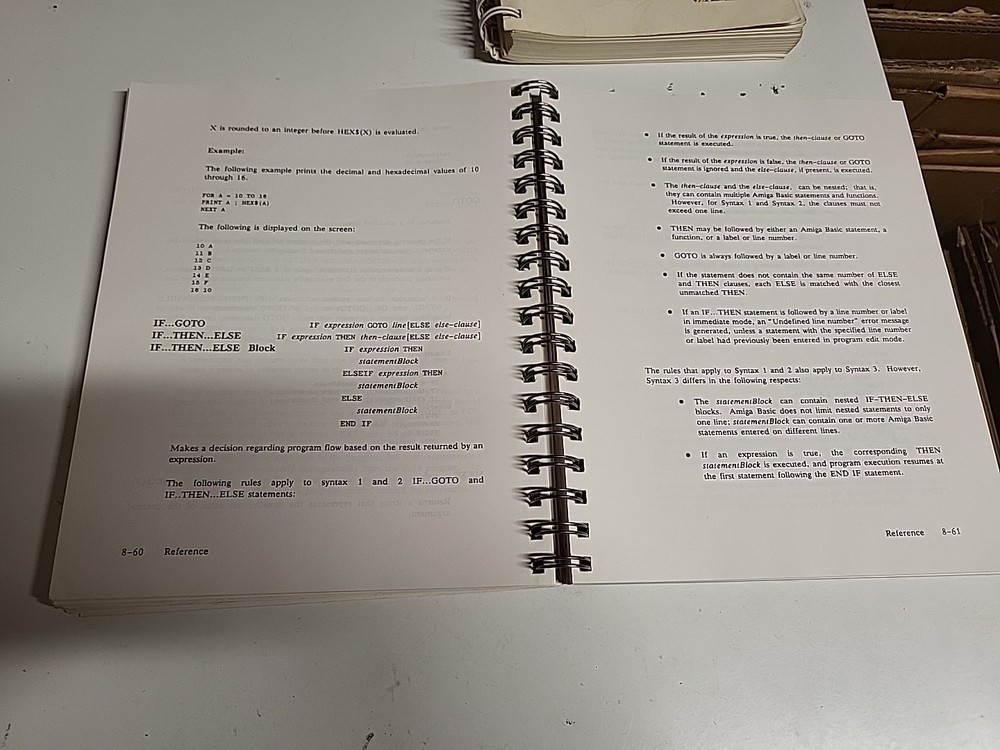 X is rounded to an integer before HEX$(X) is evaluated.
Example:
The following example prints the decimal and hexadecimal values of 10
through 16.
FOR A = 10 TO 16
PRINT A ; HEX$(A)
NEXT A
The following is displayed on the screen:
10 A
11 B
12 C
13 D
14 E
15 F
16 10
IF...GOTO IF expression GOTO line[ELSE else-clause]
IF...THEN...ELSE IF expression THEN then-clause[ELSE else-clause]
IF...THEN...ELSE Block IF expression THEN
statementBlock
ELSEIF expression THEN
statementBlock
ELSE
statementBlock
END IF
Makes a decision regarding program flow based on the result returned by an
expression.
The following rules apply to syntax 1 and 2 IF...GOTO and
IF..THEN...ELSE statements:
8-60 Reference
• If the result of the expression is true, the then-clause or GOTO
statement is executed.
• If the result of the expression is false, the then-clause or GOTO
statement is ignored and the else-clause, if present, is executed.
• The then-clause and the else-clause, can be nested; that is,
they can contain multiple Amiga Basic statements and functions.
However, for Syntax 1 and Syntax 2, the clauses must not
exceed one line.
• THEN may be followed by either an Amiga Basic statement, a
function, or a label or line number.
• GOTO is always followed by a label or line number.
• If the statement does not contain the same number of ELSE
and THEN clauses, each ELSE is matched with the closest
unmatched THEN.
• If an IF...THEN statement is followed by a line number or label
in immediate mode, an "Undefined line number" error message
is generated, unless a statement with the specified line number
or label had previously been entered in program edit mode.
The rules that apply to Syntax 1 and 2 also apply to Syntax 3. However,
Syntax 3 differs in the following respects:
• The statementBlock can contain nested IF-THEN-ELSE
blocks. Amiga Basic does not limit nested statements to only
one line; statementBlock can contain one or more Amiga Basic
statements entered on different lines.
• If an expression is true, the corresponding THEN
statementBlock is executed, and program execution resumes at
the first statement following the END IF statement.
Reference 8-61